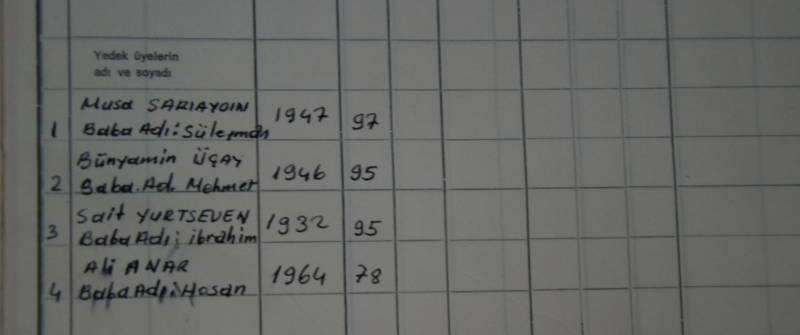 Yedek üyelerin
adı ve soyadı
Musa SARIAYDIN 1947 97
1 Baba Adı: Süleyman
Bünyamin ÜÇAY 1946 95
2 Baba Ad. Mehmet
Sait YURTSEVEN 1932 95
3 Baba Adı: ibrahim
Ali ANAR 1964 78
4 Baba Adı: Hasan